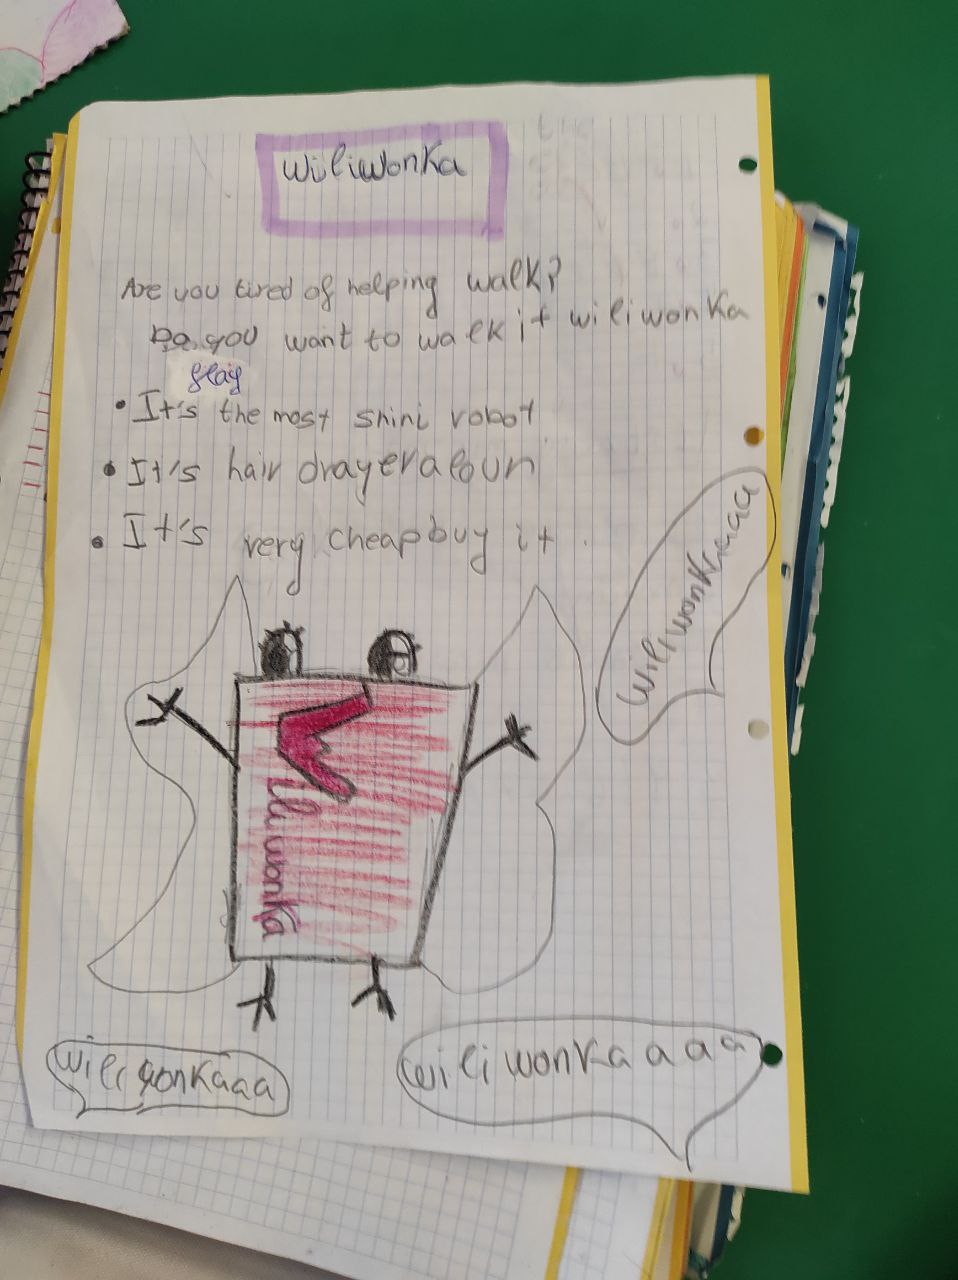 Wiliwonka
Are you tired of helping walk?
Do you want to walk it wiliwonka
• It's the most shini robot
• It's hair drayer
• It's very cheap buy it.
Wiliwonkaaaa
Wiliwonka
Wiliwonkaaa
Wiliwonkaaaa